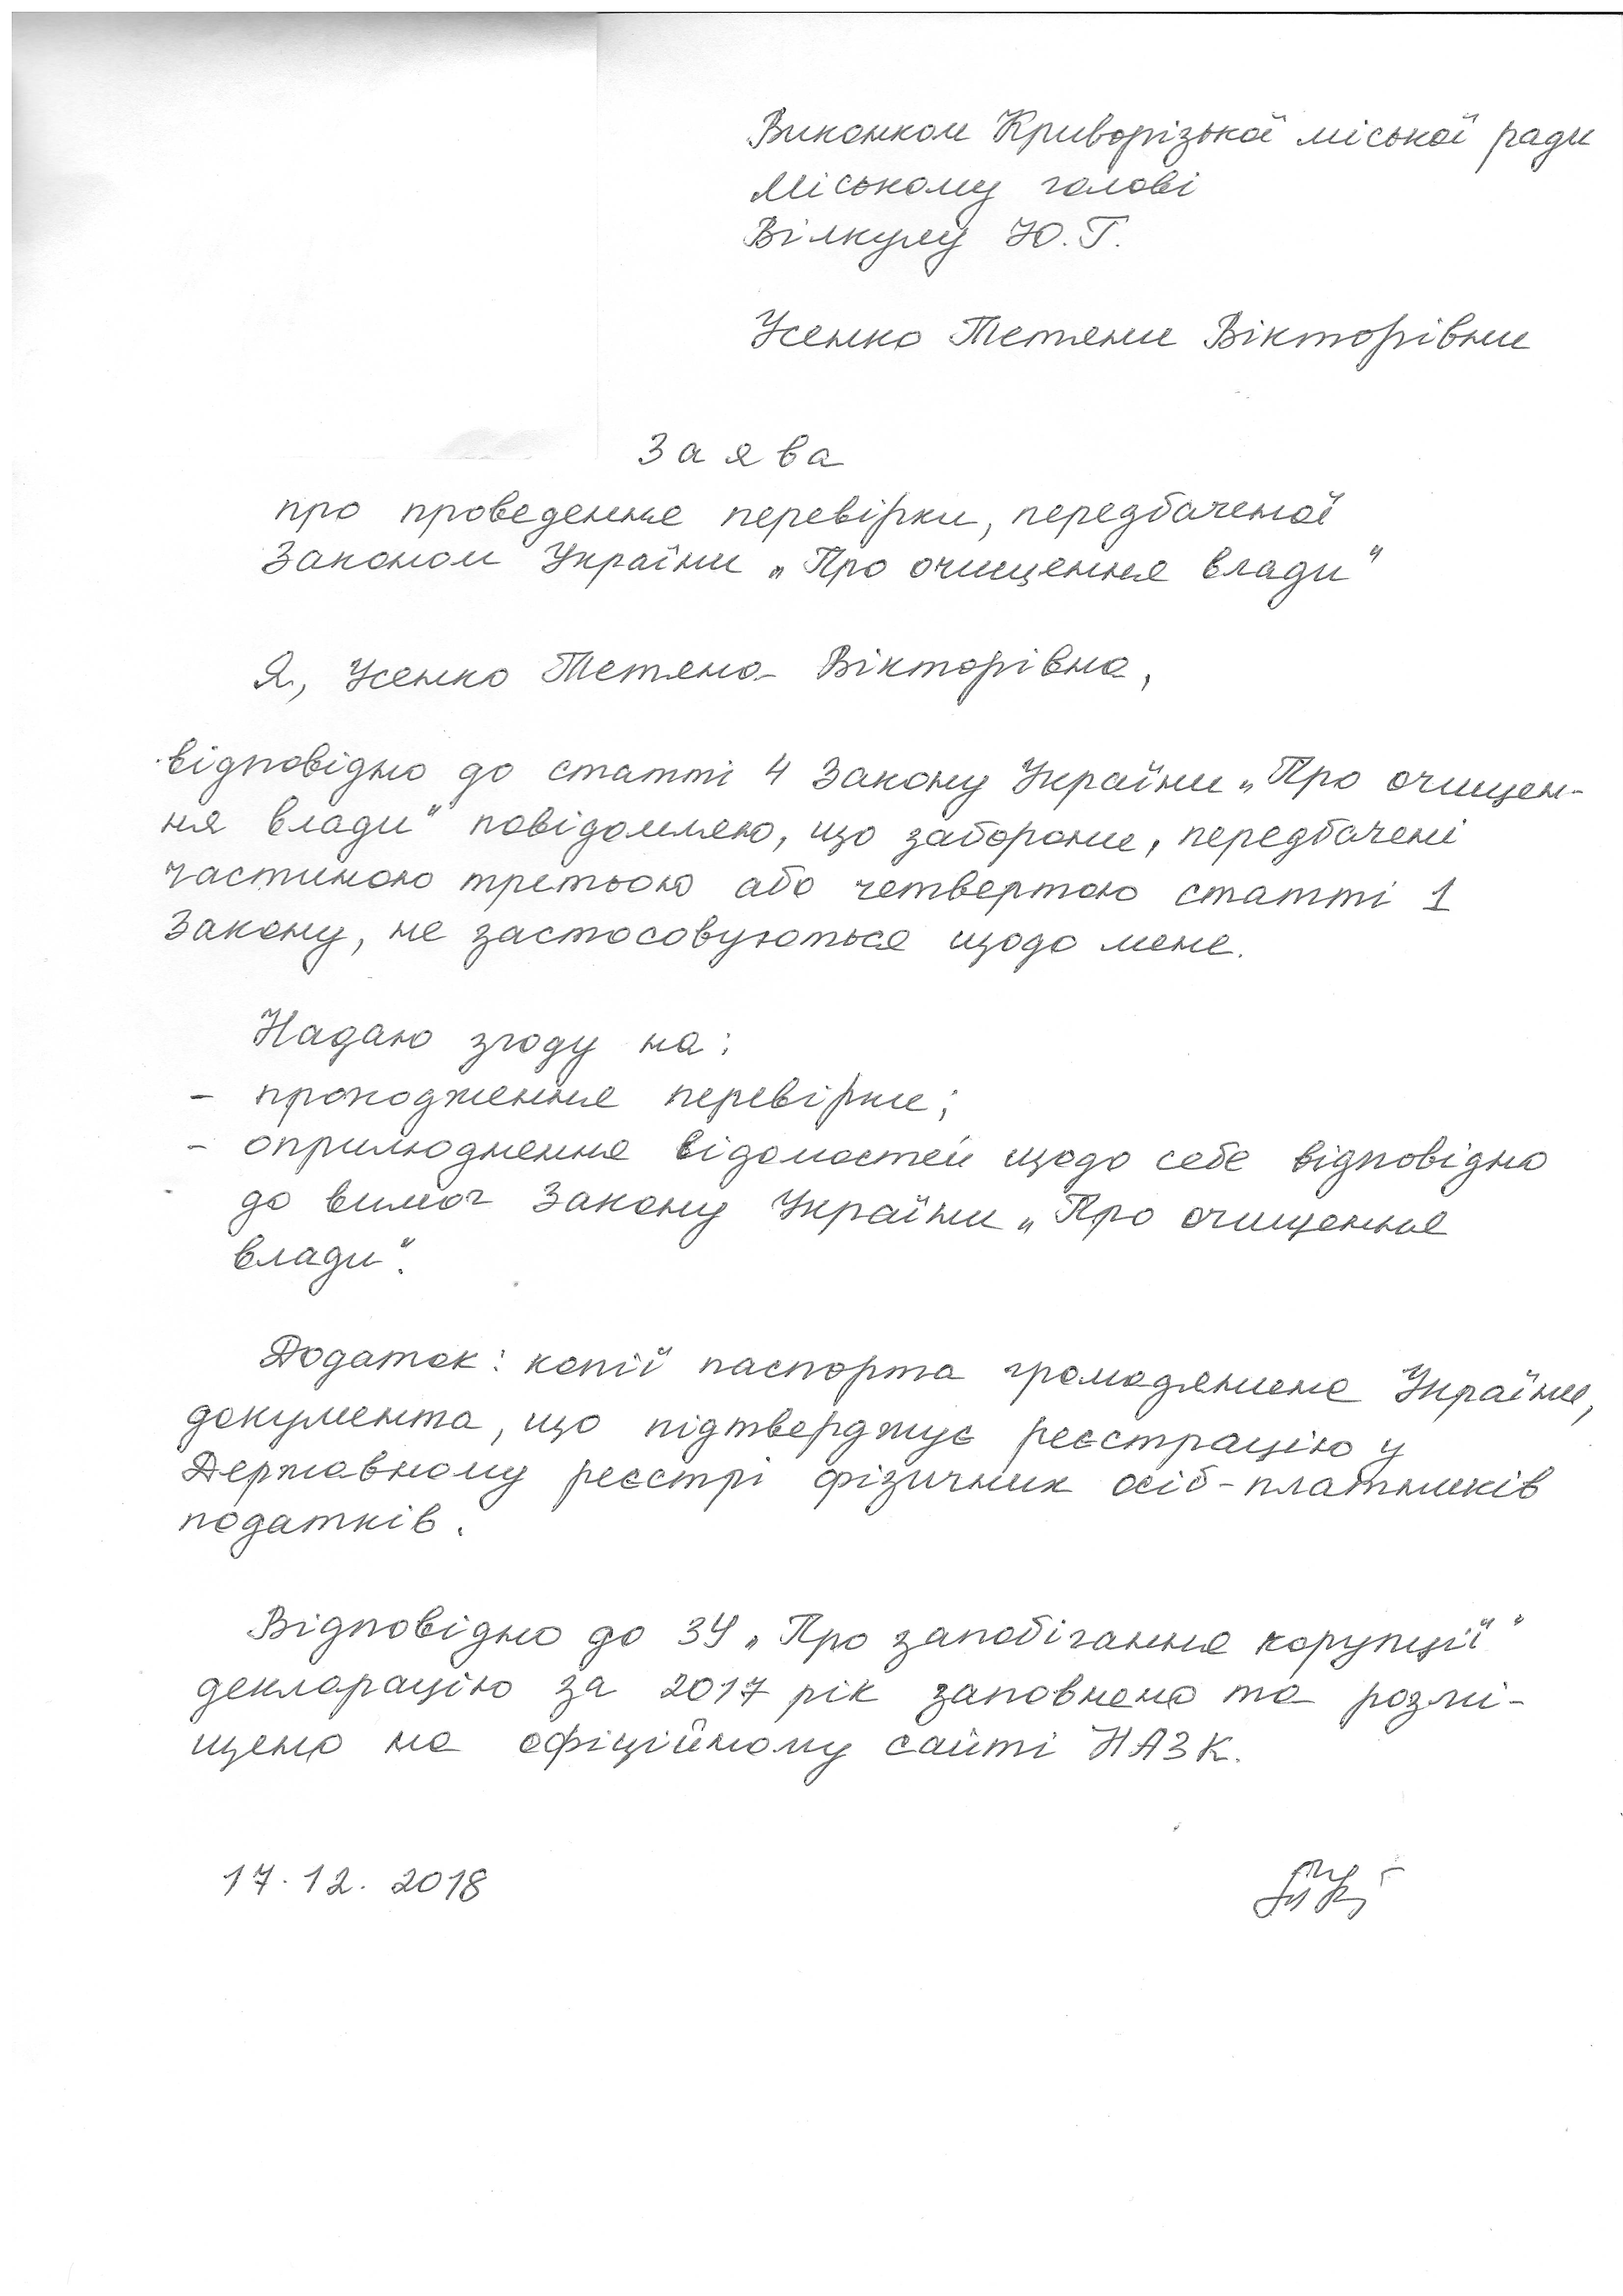 Виконком Криворізької міської ради
Міському голові
Вілкулу Ю.Г.
Усенко Тетяни Вікторівни
Заява
про проведення перевірки, передбаченої
Законом України „Про очищення влади"
Я, Усенко Тетяна Вікторівна,
відповідно до статті 4 Закону України „Про очищен-
ня влади" повідомляю, що заборони, передбачені
частиною третьою або четвертою статті 1
Закону, не застосовуються щодо мене.
Надаю згоду на:
- проходження перевірки;
- оприлюднення відомостей щодо себе відповідно
до вимог Закону України „Про очищення
влади".
Додаток: копії паспорта громадянина України,
документа, що підтверджує реєстрацію у
Державному реєстрі фізичних осіб-платників
податків.
Відповідно до ЗУ „Про запобігання корупції"
декларацію за 2017 рік заповнено та розмі-
щено на офіційному сайті НАЗК.
17.12.2018